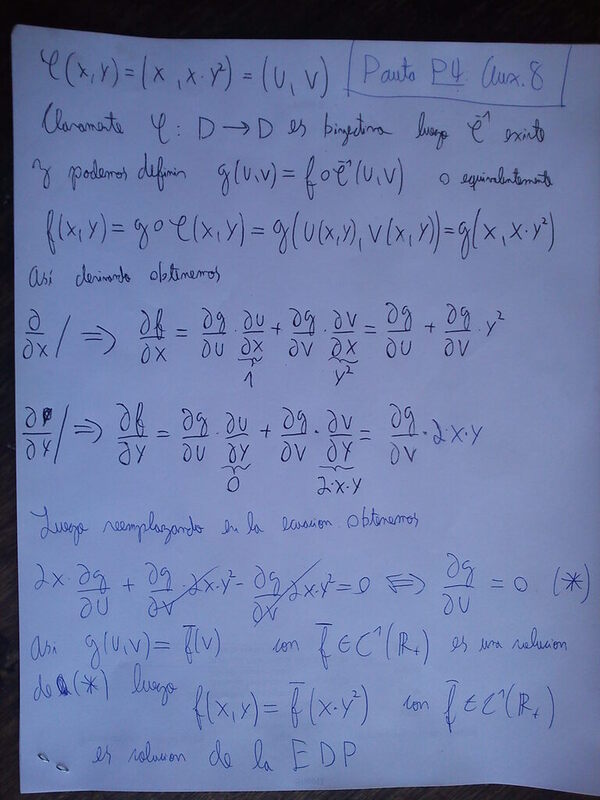 φ(x,y)=(x, x·y²)=(U,V) Pauta P4 Aux.8
Claramente φ: D→D es biyectiva luego φ⁻¹ existe
y podemos definir g(U,V)=f∘φ⁻¹(U,V) o equivalentemente
f(x,y)=g∘φ(x,y)=g(U(x,y),V(x,y))=g(x,x·y²)
Así derivando obtenemos
∂/∂x / ⟹ ∂f/∂x = ∂g/∂U · ∂U/∂x + ∂g/∂V · ∂V/∂x = ∂g/∂U + ∂g/∂V · y²
1 y²
∂/∂y / ⟹ ∂f/∂y = ∂g/∂U · ∂U/∂y + ∂g/∂V · ∂V/∂y = ∂g/∂V · 2·x·y
0 2·x·y
Luego reemplazando en la ecuacion obtenemos
2x·∂g/∂U + ∂g/∂V·2x·y² - ∂g/∂V 2x·y² = 0 ⟺ ∂g/∂U = 0 (*)
así g(U,V)=f̄(V) con f̄∈C¹(ℝ₊) es una solucion
de (*) luego
f(x,y)=f̄(x·y²) con f̄∈C¹(ℝ₊)
es solucion de la EDP